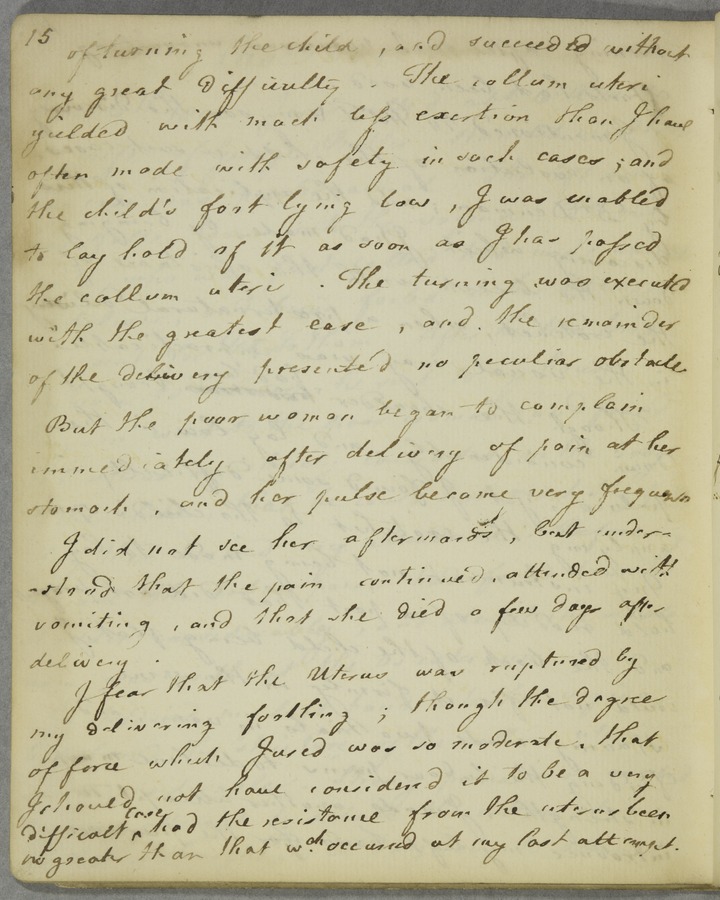 15
of turning the child, and succeeded without
any great difficulty. The collum uteri
yielded with much less exertion than I have
often made with safety in such cases; and
the child's foot lying low, I was enabled
to lay hold of it as soon as I has passed
the collum uteri. The turning was executed
with the greatest ease, and the remainder
of the delivery presented no peculiar obstacle
But the poor woman began to complain
immediately after delivery of pain at her
stomach, and her pulse became very frequent
I did not see her afterwards, but under-
-stand that the pain continued, attended with
vomiting, and that she died a few days after
delivery.
I fear that the Uterus was ruptured by
my delivering footling; though the degree
of force which I used was so moderate, that
I should not have considered it to be a very
difficult case, had the resistance from the uterus been
no greater than that wch occurred at my last attempt.